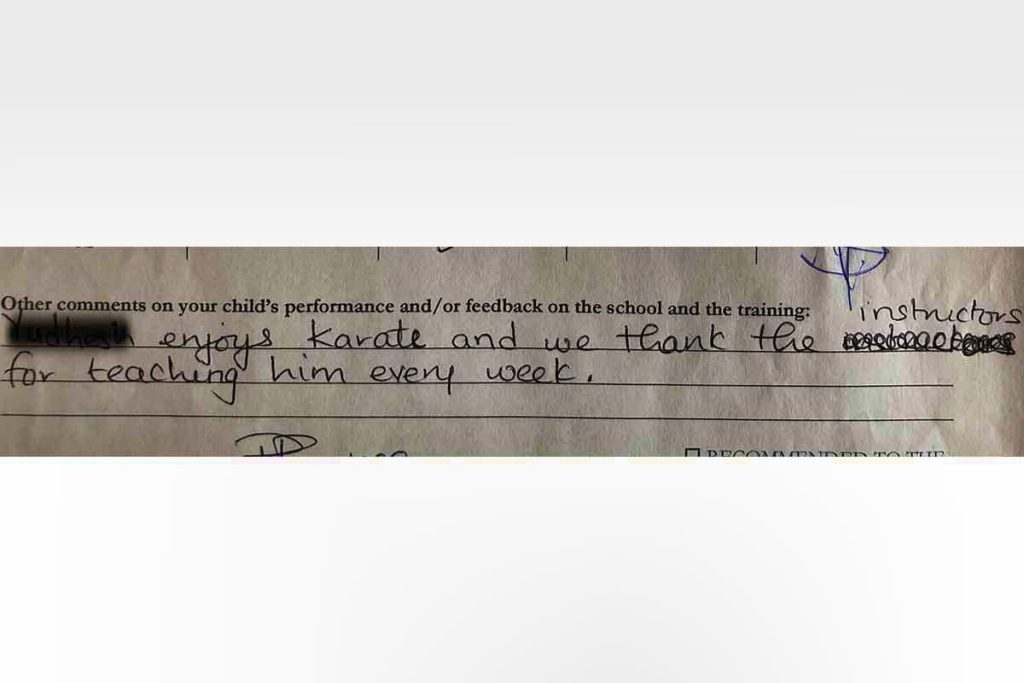 Other comments on your child's performance and/or feedback on the school and the training:
instructors
enjoys Karate and we thank the
for teaching him every week.
RECOMMENDED TO THE